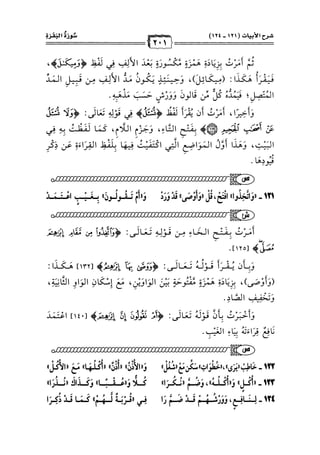 شرح الأبيات (١٢١ - ١٢٤)
٢٠١
سُورَةُ البَقَرَةِ
ثُمَّ أَمَرْتُ بِزِيَادَةِ هَمْزَةٍ مَكْسُورَةٍ بَعْدَ الأَلِفِ فِي لَفْظِ ﴿وَمِيكَىٰلَ﴾،
فَيُقْرَأُ هَكَذَا: (مِيكَائِلَ)، وَحِينَئِذٍ يَكُونُ مَدُّ الأَلِفِ مِنْ قَبِيلِ المَدِّ
المُتَّصِلِ؛ فَيَمُدُّهُ كُلٌّ مِنْ قَالُونَ وَوَرْشٍ حَسَبَ مَذْهَبِهِ.
وَأَخِيرًا، أَمَرْتُ أَنْ يُقْرَأَ لَفْظُ ﴿تُسْـَٔلُ﴾ فِي قَوْلِهِ تَعَالَى: ﴿وَلَا تُسْـَٔلُ
عَنْ أَصْحَٰبِ ٱلْجَحِيمِ﴾ بِفَتْحِ التَّاءِ، وَجَزْمِ اللَّامِ، كَمَا لَفَظْتُ بِهِ فِي
البَيْتِ، وَهَذَا أَوَّلُ المَوَاضِعِ الَّتِي اكْتَفَيْتُ فِيهَا بِلَفْظِ القِرَاءَةِ عَنْ ذِكْرِ
قُيُودِهَا.
١٢١ - «وَاتَّخَذُوا» افْتَحْ، قُلْ «وَأَوْصَى» قَدْ وَرَدْ وَ«أَمْ تَقُولُونَ» بِغَيْبٍ اعْتَمَدْ
أَمَرْتُ بِفَتْحِ الخَاءِ مِنْ قَوْلِهِ تَعَالَى: ﴿وَٱتَّخِذُوا۟ مِن مَّقَامِ إِبْرَٰهِـۧمَ
مُصَلًّى﴾ [١٢٥].
وَبِأَنْ يُقْرَأَ قَوْلُهُ تَعَالَى: ﴿وَوَصَّىٰ بِهَآ إِبْرَٰهِـۧمُ﴾ [١٣٢] هَكَذَا:
(وَأَوْصَى)، بِزِيَادَةِ هَمْزَةٍ مَفْتُوحَةٍ بَيْنَ الوَاوَيْنِ، مَعَ إِسْكَانِ الوَاوِ الثَّانِيَةِ،
وَتَخْفِيفِ الصَّادِ.
وَأَخْبَرْتُ بِأَنَّ قَوْلَهُ تَعَالَى: ﴿أَمْ تَقُولُونَ إِنَّ إِبْرَٰهِـۧمَ﴾ [١٤٠] اعْتَمَدَ
نَافِعٌ قِرَاءَتَهُ بِيَاءِ الغَيْبِ.
١٢٢ - خَاطِبْ «يَرَى»، «خُطُوَاتِ» سَكِّنْ مَعْ «شُغُلْ» وَ«الأُذْنُ» «أُذْنٌ» «أُكْلُهَا» مَعَ «الأُكُلْ»
١٢٣ - «أُكْلٍ» وَ«أُكْلُهُ»، وَضُمَّ «نُكُرَا» كُلًّا وَ«عُقُبًا» وَكَذَاكَ «نُذُرَا»
١٢٤ - لِنَافِعٍ، وَوَرْشُهُمْ قَدْ ضَمَّ رَا فِي «قُرْبَةٌ لَّهُمْ» كَمَا قَدْ ذُكِرَا